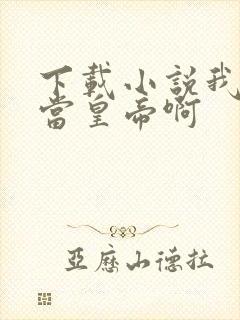 下載小説我
當皇帝啊
亞歷山德拉